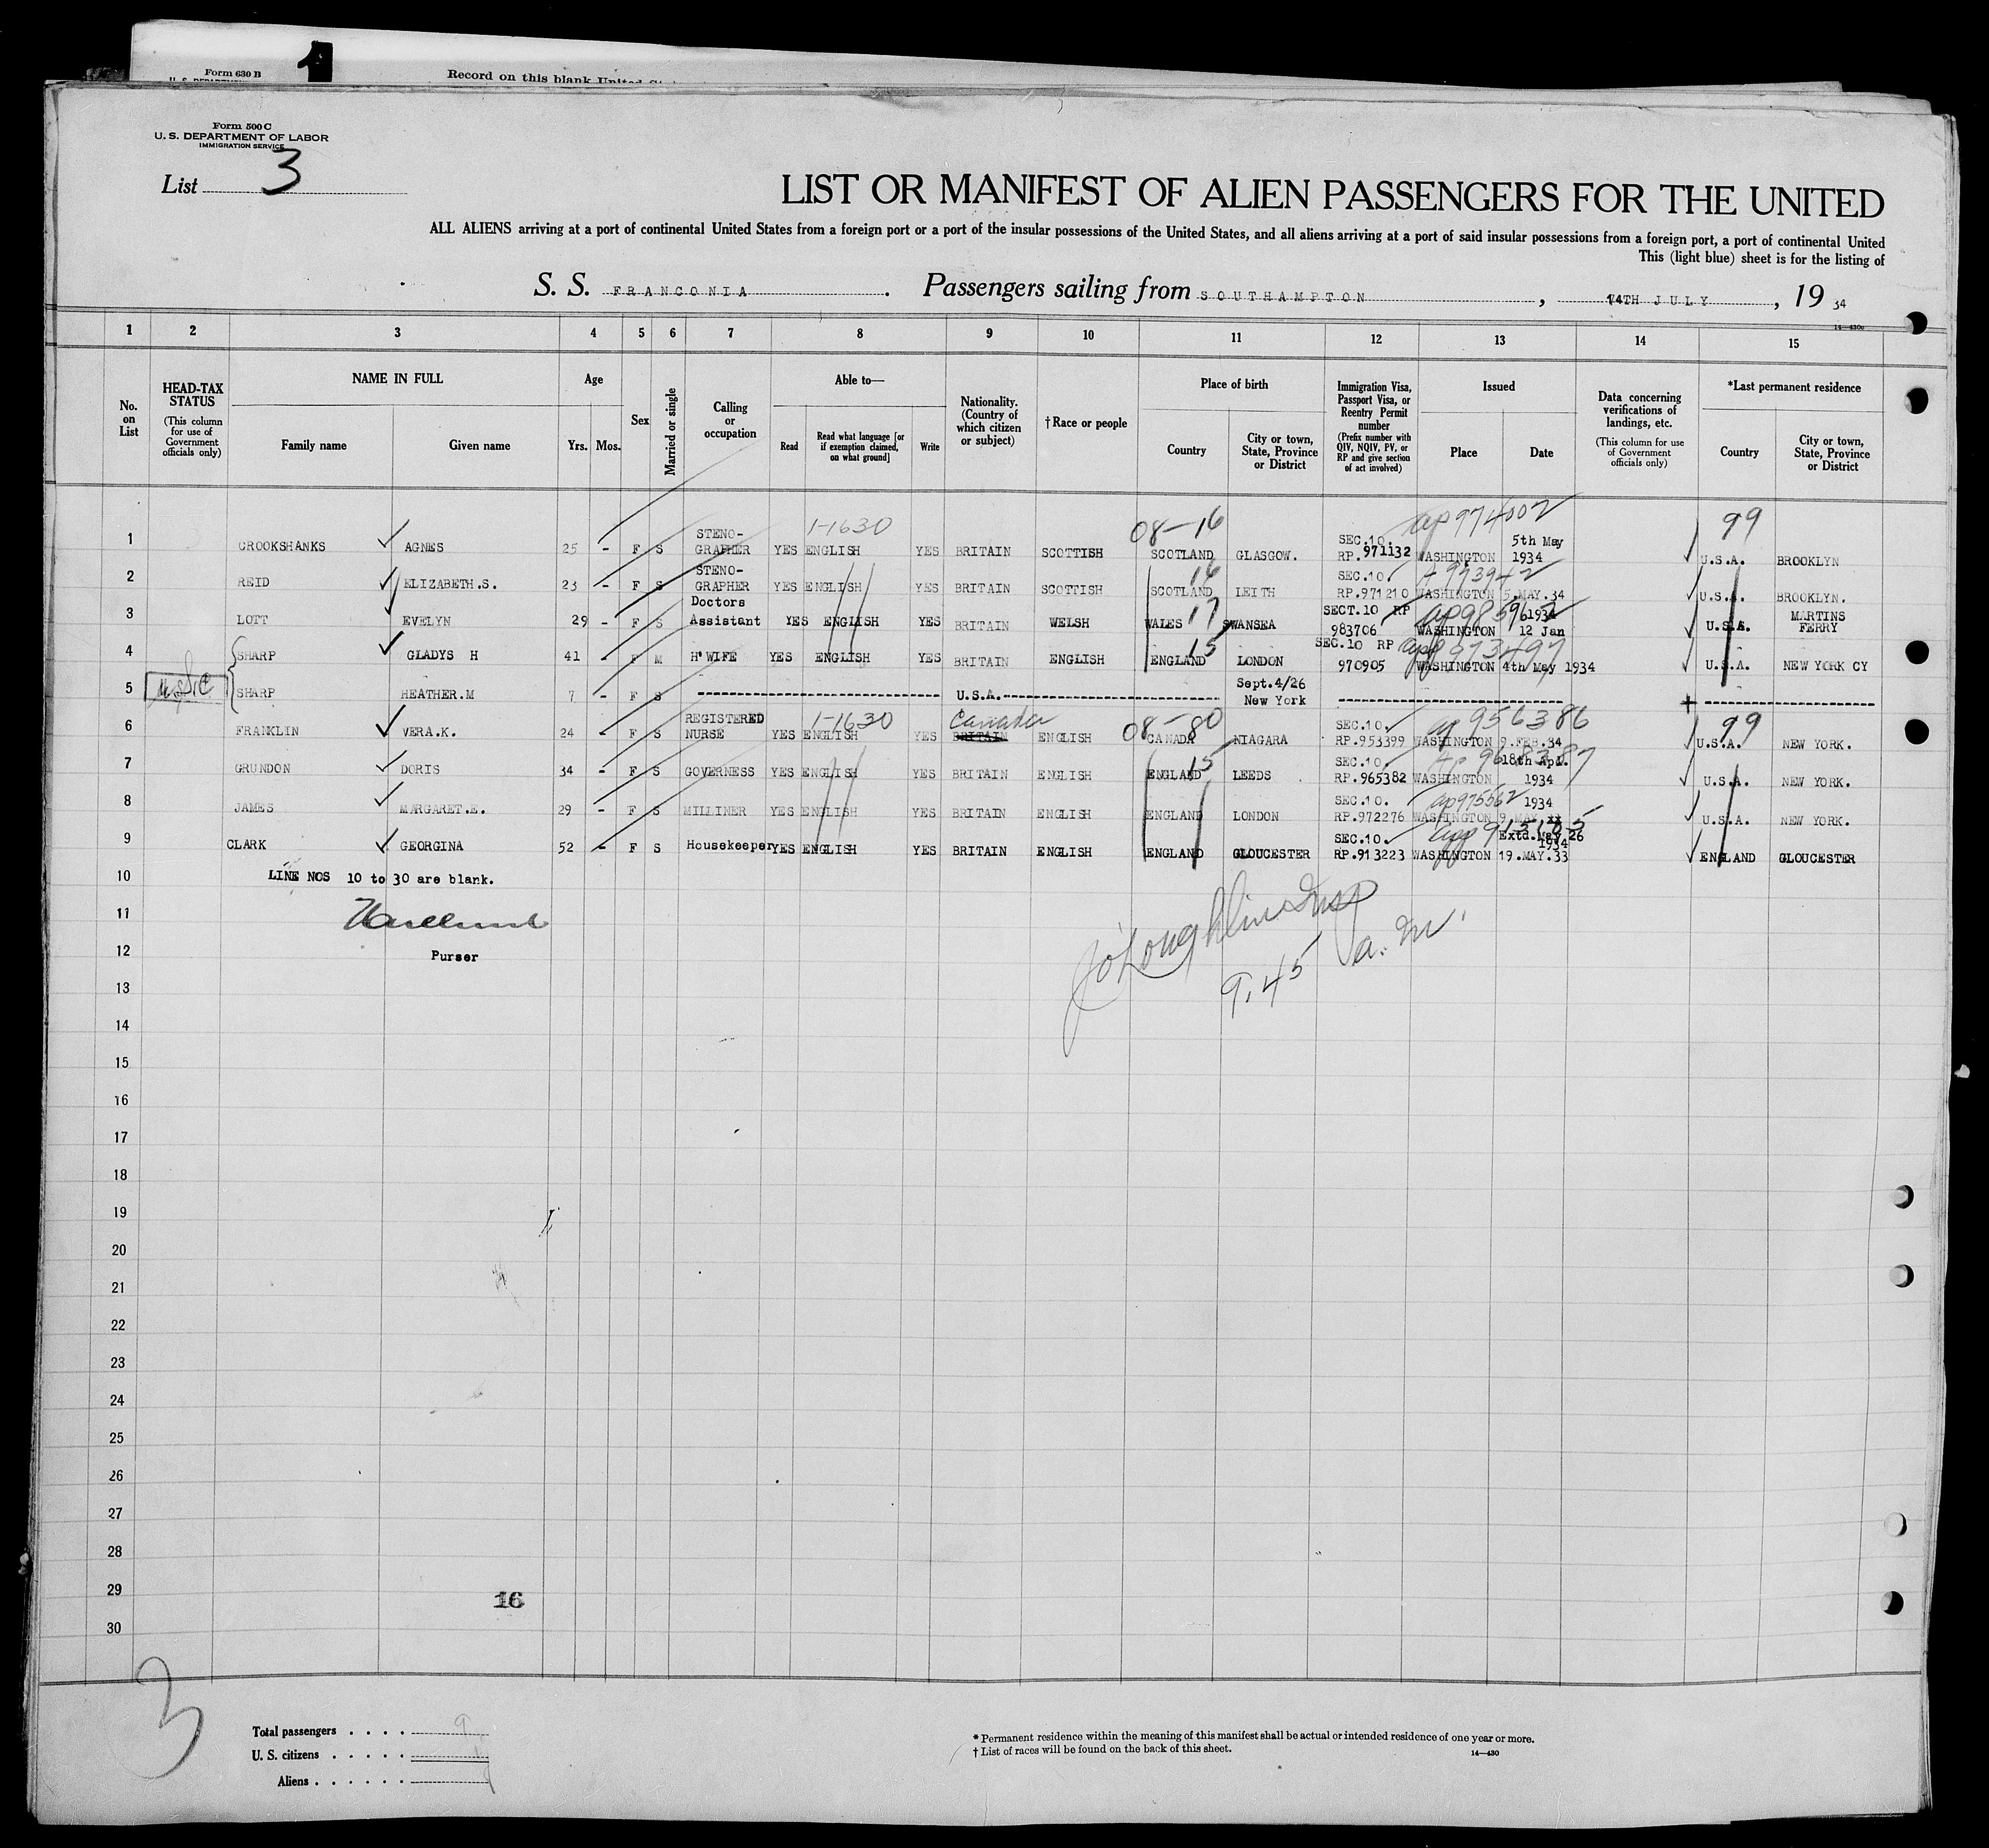 Form 630 B
Record on this blank United
Form 500 C
U. S. DEPARTMENT OF LABOR
IMMIGRATION SERVICE
List 3
LIST OR MANIFEST OF ALIEN PASSENGERS FOR THE UNITED
ALL ALIENS arriving at a port of continental United States from a foreign port or a port of the insular possessions of the United States, and all aliens arriving at a port of said insular possessions from a foreign port, a port of continental United
This (light blue) sheet is for the listing of
S. S. FRANCONIA . Passengers sailing from SOUTHAMPTON , 14TH JULY , 19 34
14—430c
1 2 3 4 5 6 7 8 9 10 11 12 13 14 15
No. on List
HEAD-TAX STATUS (This column for use of Government officials only)
NAME IN FULL
Family name Given name
Age
Yrs. Mos.
Sex
Married or single
Calling or occupation
Able to—
Read Read what language [or if exemption claimed, on what ground] Write
Nationality. (Country of which citizen or subject)
†Race or people
Place of birth
Country City or town, State, Province or District
Immigration Visa, Passport Visa, or Reentry Permit number (Prefix number with QIV, NQIV, PV, or RP and give section of act involved)
Issued
Place Date
Data concerning verifications of landings, etc. (This column for use of Government officials only)
*Last permanent residence
Country City or town, State, Province or District
1-1630 08-16 ap974002 99
1 CROOKSHANKS AGNES 25 - F S STENO-GRAPHER YES ENGLISH YES BRITAIN SCOTTISH SCOTLAND GLASGOW. SEC.10. RP.971132 WASHINGTON 5th May 1934 U.S.A. BROOKLYN
2 REID ELIZABETH.S. 23 - F S STENO-GRAPHER YES ENGLISH YES BRITAIN SCOTTISH SCOTLAND 16 LEITH SEC.10. RP.971210 WASHINGTON 5.MAY.34 U.S.A. BROOKLYN.
3 LOTT EVELYN 29 - F S Doctors Assistant YES ENGLISH YES BRITAIN WELSH WALES 17 SWANSEA SECT.10 RP 983706 WASHINGTON 12 Jan 1934 U.S.A. MARTINS FERRY
4 SHARP GLADYS H 41 - F M H'WIFE YES ENGLISH YES BRITAIN ENGLISH ENGLAND 15 LONDON SEC.10 RP 970905 WASHINGTON 4th May 1934 U.S.A. NEW YORK CY
5 SHARP HEATHER.M 7 - F S U.S.A. Sept.4/26 New York
1-1630 Canada 08-80 ap 956386 99
6 FRANKLIN VERA.K. 24 - F S REGISTERED NURSE YES ENGLISH YES BRITAIN ENGLISH CANADA NIAGARA SEC.10. RP.953399 WASHINGTON 9.FEB.34 U.S.A. NEW YORK.
7 GRUNDON DORIS 34 - F S GOVERNESS YES ENGLISH YES BRITAIN ENGLISH ENGLAND 15 LEEDS SEC.10. RP.965382 WASHINGTON 18th Apl. 1934 U.S.A. NEW YORK.
8 JAMES MARGARET.E. 29 - F S MILLINER YES ENGLISH YES BRITAIN ENGLISH ENGLAND LONDON SEC.10. RP.972276 ap975562 WASHINGTON 9.MAY. 1934 U.S.A. NEW YORK.
9 CLARK GEORGINA 52 - F S Housekeeper YES ENGLISH YES BRITAIN ENGLISH ENGLAND GLOUCESTER SEC.10. RP.913223 WASHINGTON Extd.May 26 1934 19.MAY.33 ENGLAND GLOUCESTER
10 LINE NOS 10 to 30 are blank.
11
12 Purser
9.45 a.m.
13
14
15
16
17
18
19
20
21
22
23
24
25
26
27
28
29 16
30
3
Total passengers . . . . 9
U. S. citizens . . . . .
Aliens . . . . . .
* Permanent residence within the meaning of this manifest shall be actual or intended residence of one year or more.
† List of races will be found on the back of this sheet.
14—430